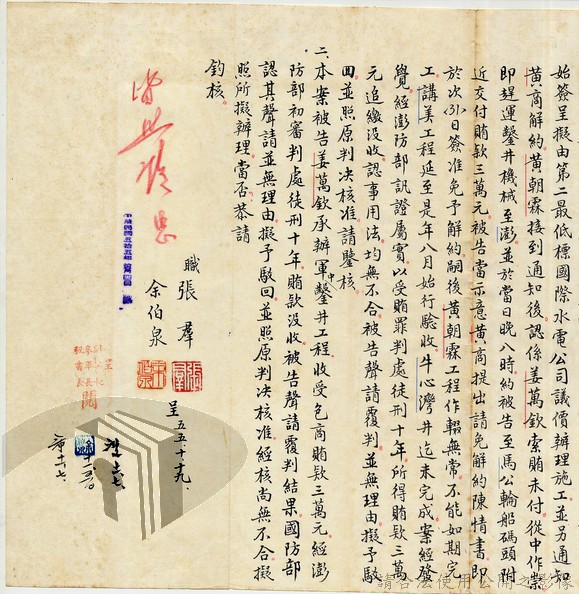 始簽呈擬由第二最低標國際水電公司議價辦理施工並另通知
黃商解約黃朝霖接到通知後認係姜萬欽索賄未付從中作祟
即趕運鑿井機械至澎並於當日晚八時約被告至馬公輪船碼頭附
近交付賄款三萬元被告當示意黃商提出請免解約陳情書即
於次(31)日簽准免予解約嗣後黃朝霖工程作輟無常不能如期完
工講美工程延至是年八月始行驗收牛心灣井迄未完成案經發
覺經澎防部訊證屬實以受賄罪判處徒刑十年所得賄款三萬
元追繳沒收認事用法均無不合被告聲請覆判並無理由擬予駁
回並照原判決核准請鑒核
二、本案被告姜萬欽承辦軍中鑿井工程收受包商賄款三萬元經澎
防部初審判處徒刑十年賄款沒收被告聲請覆判結果國防部
認其聲請並無理由擬予駁回並照原判決核准經核尚無不合擬
照所擬辦理當否恭請
鈞核
職張群
余伯泉
呈五五十十九
閱
請合法使用公開之影像